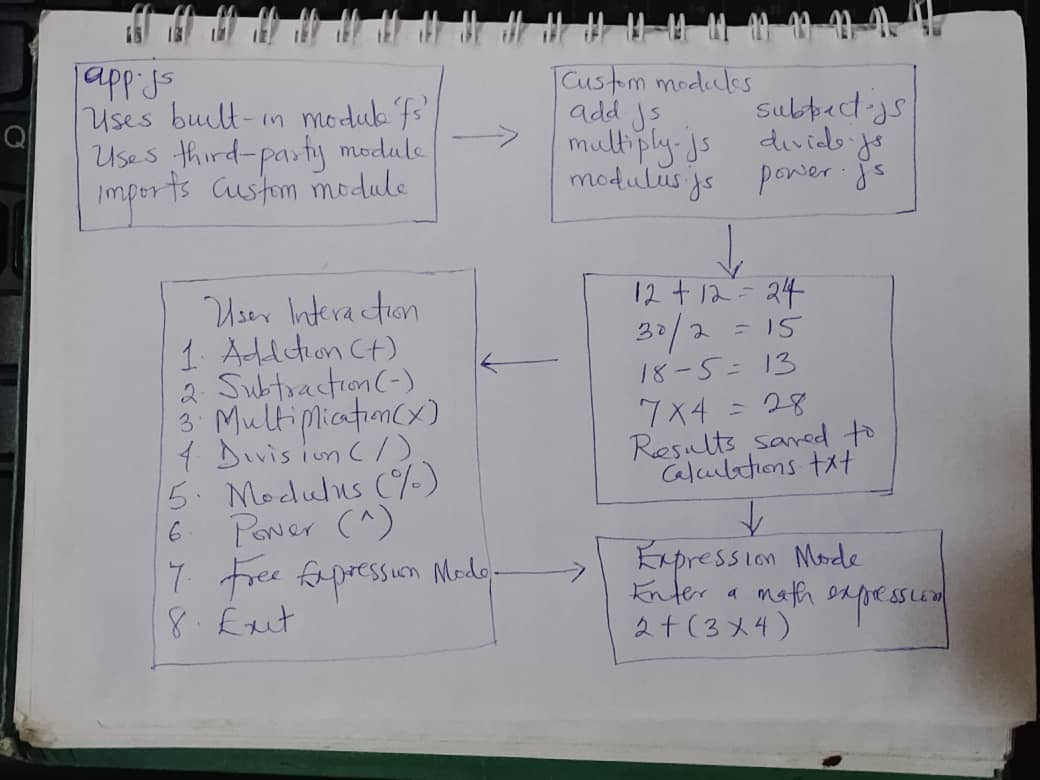 app.js
Uses built-in module 'fs'
Uses third-party module
imports Custom module
Custom modules
add.js subtract.js
multiply.js divide.js
modulus.js power.js
12 + 12 = 24
30/2 = 15
18-5 = 13
7x4 = 28
Results saved to
Calculations txt
User Interaction
1. Addition (+)
2. Subtraction (-)
3. Multiplication (x)
4. Division (/)
5. Modulus (%)
6. Power (^)
7. free Expression Mode
8. Exit
Expression Mode
Enter a math expression
2+(3x4)